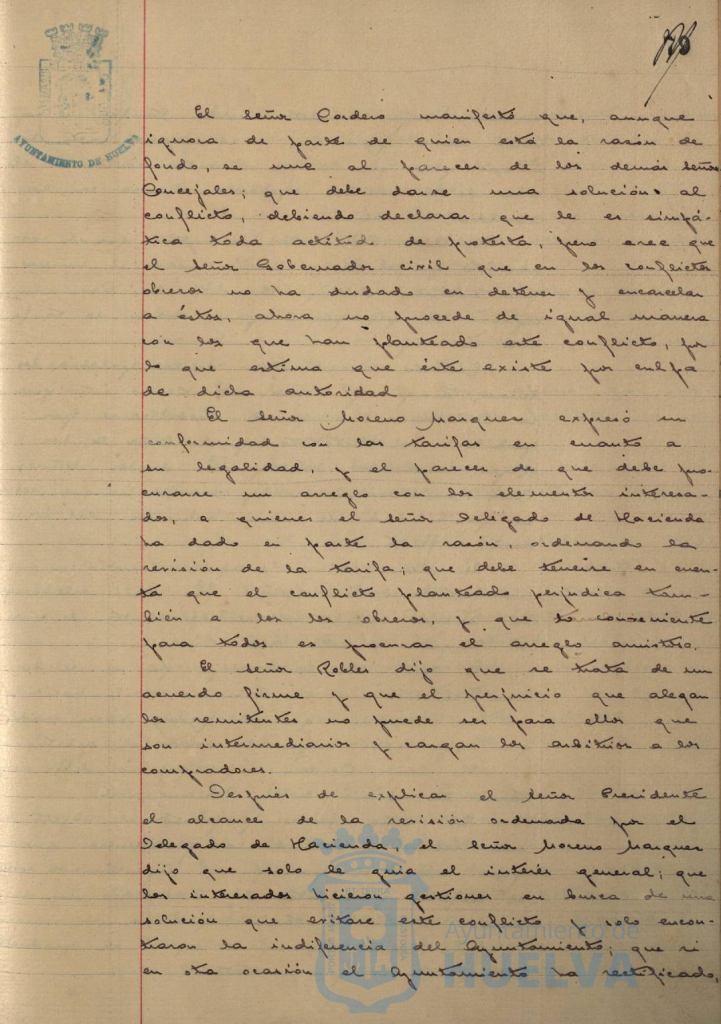 AYUNTAMIENTO DE HUELVA
El Señor Cordero manifestó que, aunque
ignora de parte de quien está la razón de
fondo, se une al parecer de los demás Señores
Concejales; que debe darse una solución al
conflicto, debiendo declarar que le es simpá-
tica toda actitud de protesta, pero cree que
el Señor Gobernador civil que en los conflictos
obreros no ha dudado en detener y encarcelar
a éstos, ahora no procede de igual manera
con los que han planteado este conflicto, por
lo que estima que éste existe por culpa
de dicha autoridad
El Señor Moreno Marquez expresó su
conformidad con las tarifas en cuanto a
su legalidad, y el parecer de que debe pro-
curarse un arreglo con los elementos interesa-
dos, a quienes el Señor Delegado de Hacienda
ha dado en parte la razón, ordenando la
revisión de la tarifa; que debe tenerse en cuen-
ta que el conflicto planteado perjudica tam-
bién a los los obreros, y que lo conveniente
para todos es procurar el arreglo amistoso.
El Señor Robles dijo que se trata de un
acuerdo firme y que el perjuicio que alegan
los remitentes no puede ser para ellos que
son intermediarios y cargan los arbitrios a los
compradores.
Después de explicar el Señor Presidente
el alcance de la revisión ordenada por el
Delegado de Hacienda, el Señor Moreno Marquez
dijo que solo le guia el interés general; que
los interesados hicieron gestiones en busca de una
solución que evitare este conflicto y solo encon-
traron la indiferencia del Ayuntamiento; que si
en otra ocasión el Ayuntamiento ha rectificado,
Ayuntamiento de
HUELVA